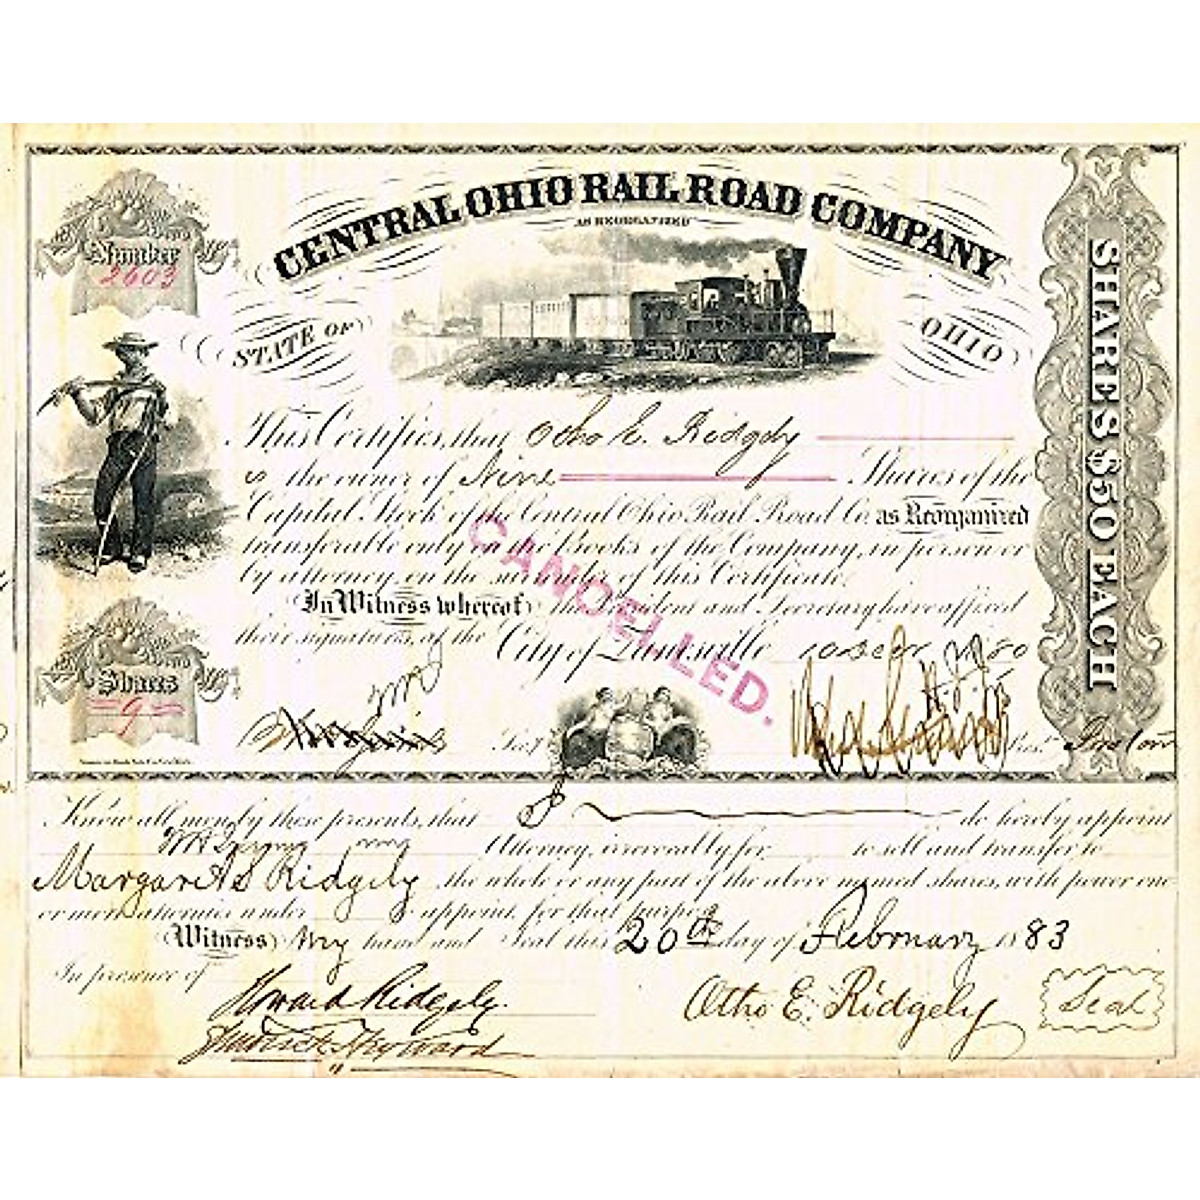 CENTRAL OHIO RAIL ROAD COMPANY
AS REORGANIZED
Number
2603
STATE OF OHIO
SHARES $50 EACH
This Certifies, that Otho E. Ridgely
is the owner of Nine Shares of the
Capital Stock of the Central Ohio Rail Road Co. as Reorganized
transferable only on the Books of the Company, in person or
by attorney, on the surrender of this Certificate.
In Witness whereof the President and Secretary have affixed
their signatures, at the City of Zanesville
CANCELLED.
Shares
9
Know all men by these presents, that I do hereby appoint
Attorney, irrevocably for to sell and transfer to
Margaret S Ridgely, the whole or any part of the above named shares, with power one
or more attornies under appoint, for that purpose
Witness my hand and Seal this 20th day of February 1883
In presence of
Howard Ridgely.
Otho E. Ridgely
Seal